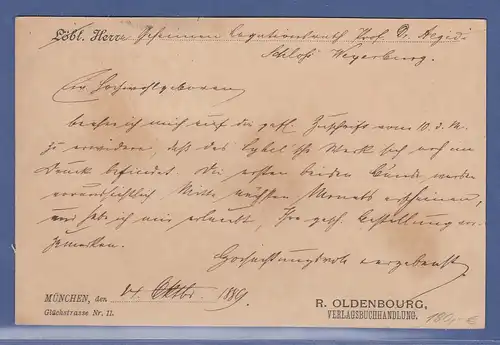 Löbl. Herrn Geheimen Legationsrath Prof. D. Aegidi
Schloß Weyerburg.
Ew. Hochwohlgeboren
beehre ich mich auf die gefl. Zuschrift vom 10. d. M.
zu erwidern, daß das Sybel'sche Werk sich noch im
Druck befindet. Die ersten beiden Bände werden
voraussichtlich Mitte nächsten Monats erscheinen,
und habe ich mir erlaubt, Ihre gesch. Bestellung vor-
zumerken.
Hochachtungsvoll ergebenst
MÜNCHEN, den 14. Oktbr. 1889.
Glückstrasse Nr. 11.
R. OLDENBOURG,
VERLAGSBUCHHANDLUNG.